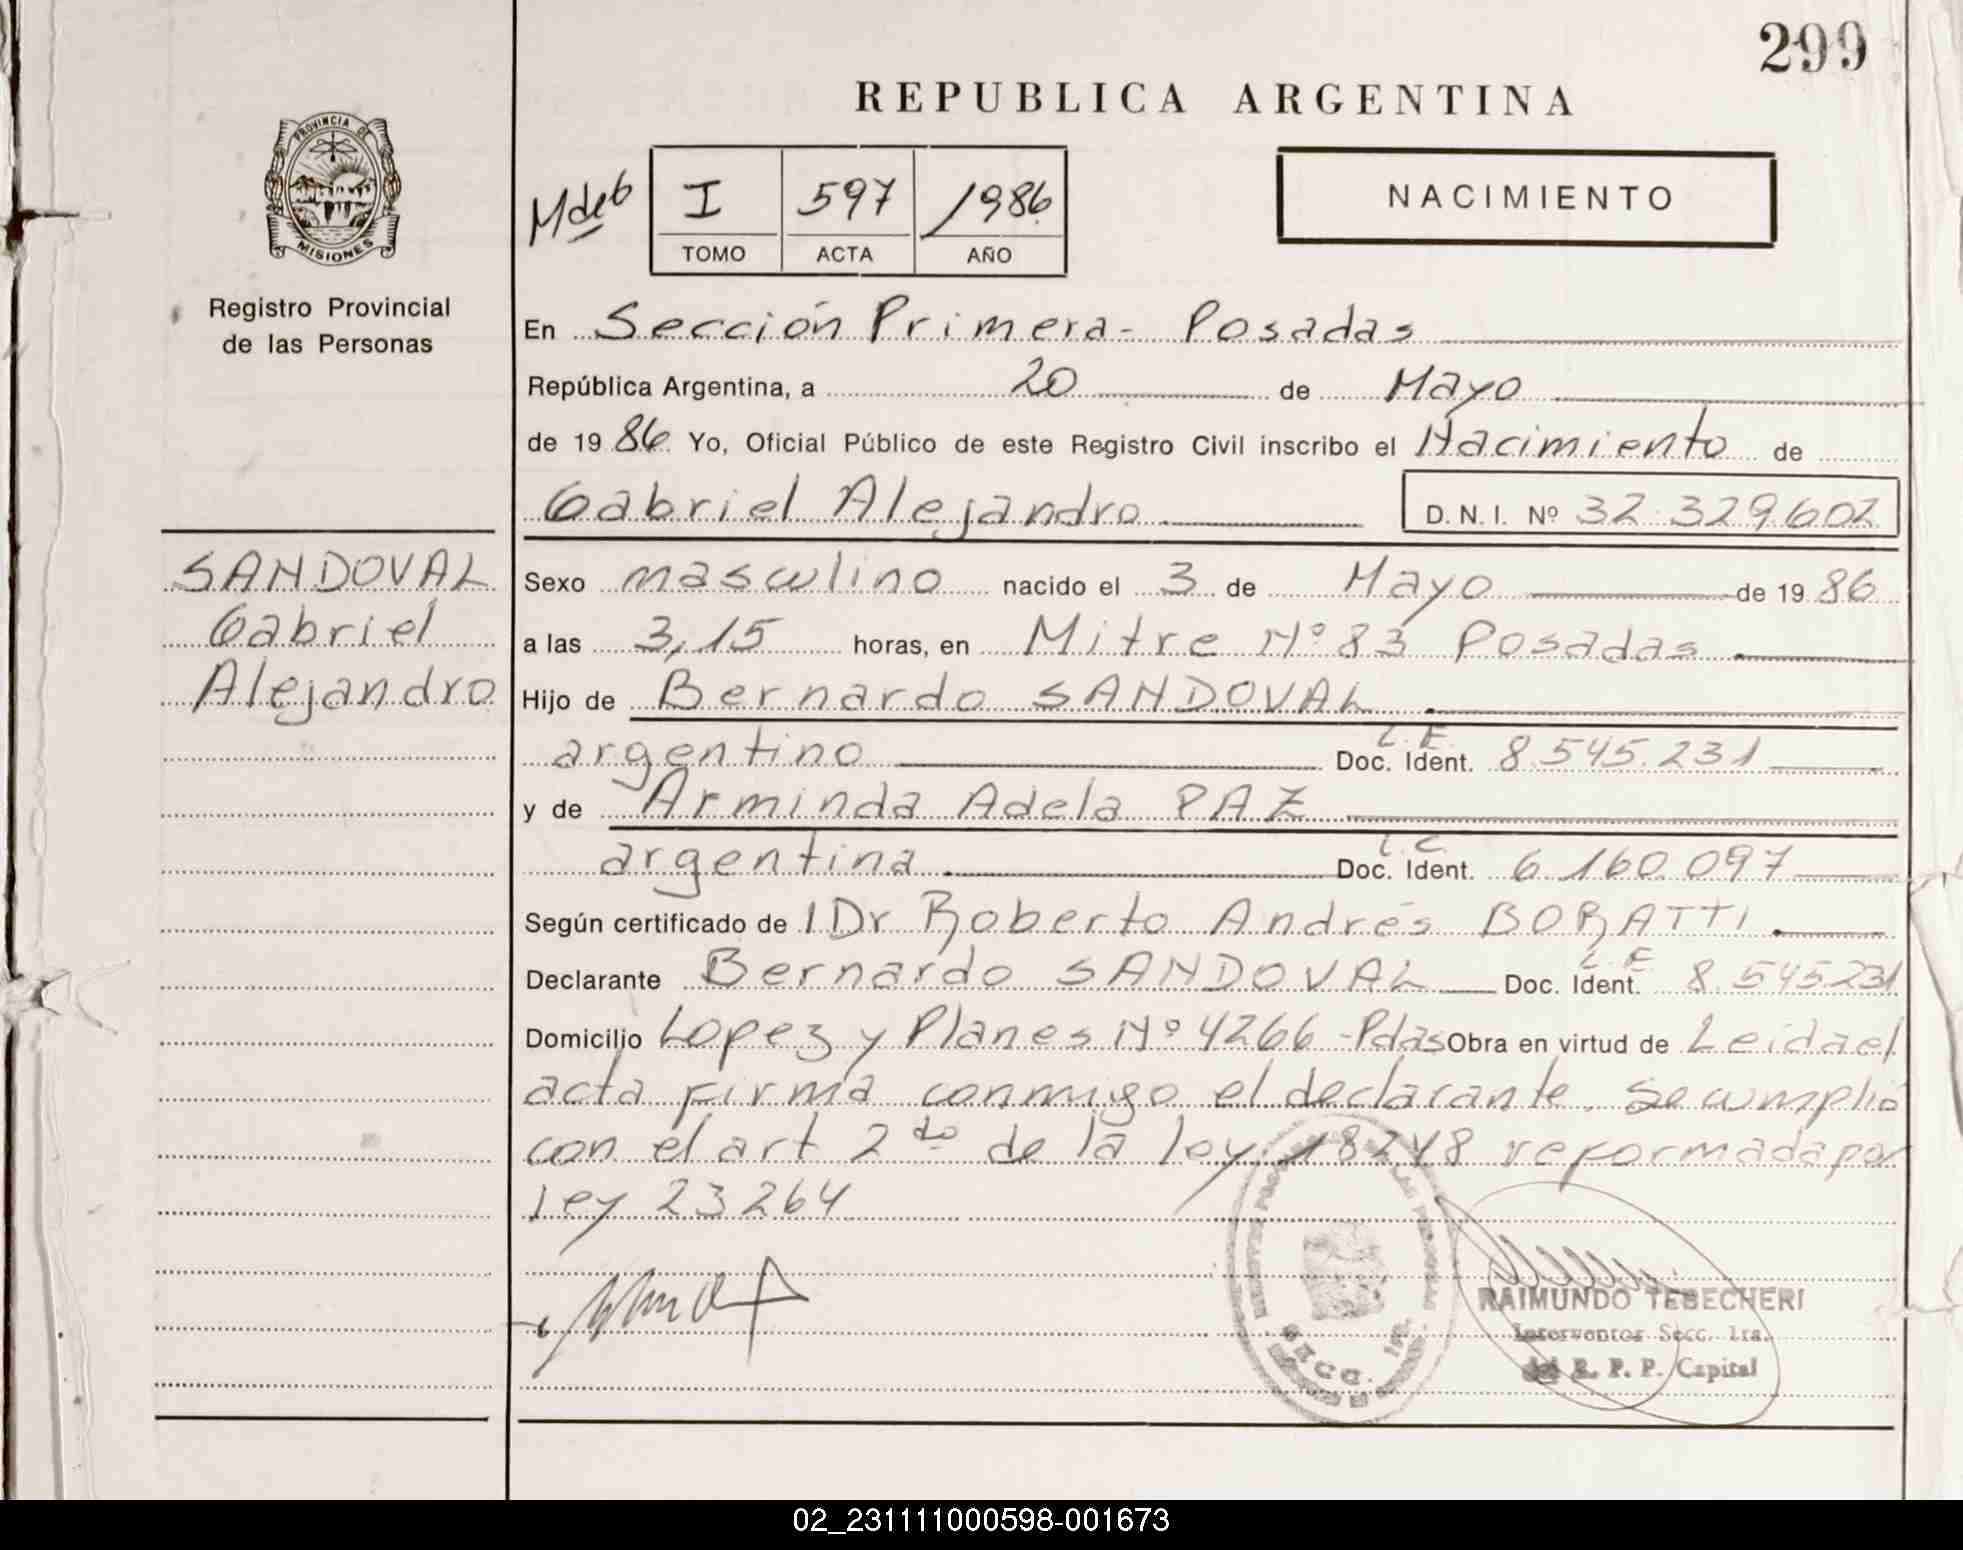 299
REPUBLICA ARGENTINA
PROVINCIA DE
MISIONES
Registro Provincial
de las Personas
Mdeb
I 597 1986
TOMO ACTA AÑO
NACIMIENTO
En Sección Primera - Posadas
República Argentina, a 20 de Mayo
de 1986 Yo, Oficial Público de este Registro Civil inscribo el Nacimiento de
Gabriel Alejandro D. N. I. Nº 32.329.602
SANDOVAL
Gabriel
Alejandro
Sexo masculino nacido el 3 de Mayo de 1986
a las 3,15 horas, en Mitre Nº 83 Posadas
Hijo de Bernardo SANDOVAL
argentino L.E. Doc. Ident. 8.545.231
y de Arminda Adela PAZ
argentina L.C. Doc. Ident. 6.160.097
Según certificado de l Dr Roberto Andrés BORATTI
Declarante Bernardo SANDOVAL L.E. Doc. Ident. 8.545.231
Domicilio Lopez y Planes Nº 4266 - Pdas Obra en virtud de Leída el
acta firma conmigo el declarante. Se cumplió
con el art 2do de la ley 18248 reformada por
ley 23264
Secc. 1ra.
RAIMUNDO TEBECHERI
Interventor Secc. 1ra.
R. P. P. Capital
02_231111000598-001673